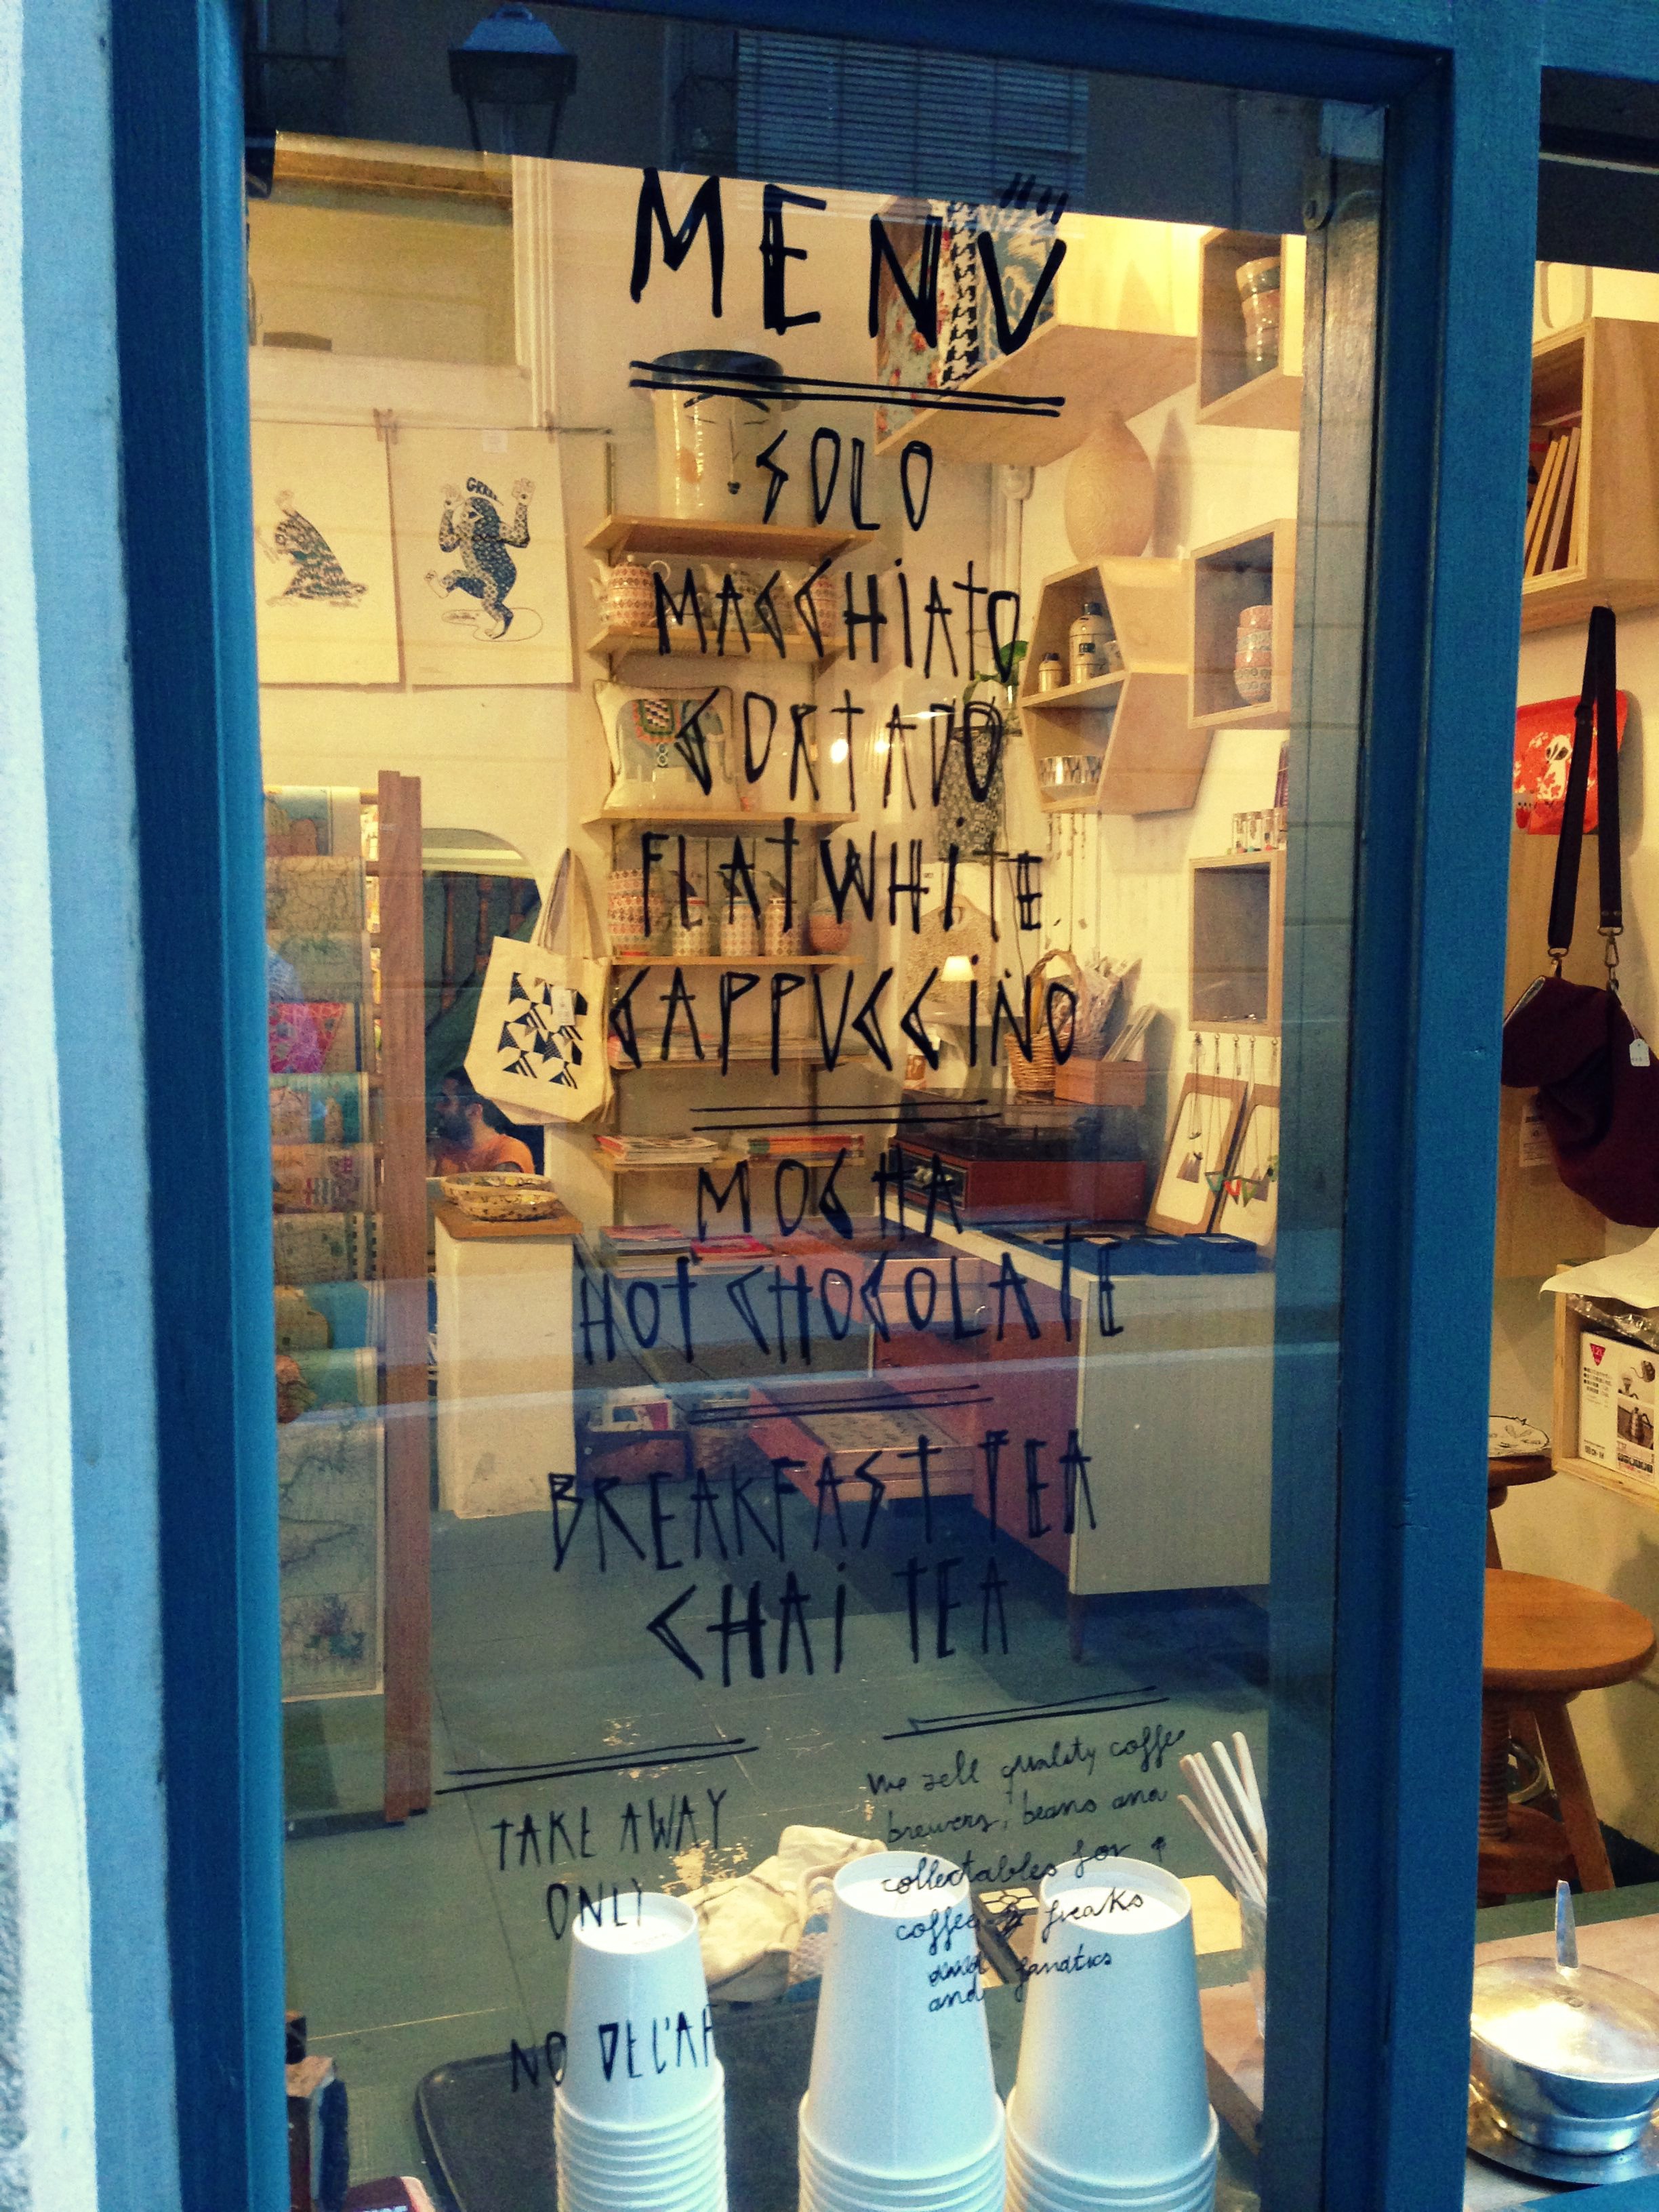 MENÜ
SOLO
MACCHIATO
CORTADO
FLAT WHITE
CAPPUCCINO
MOCHA
HOT CHOCOLATE
BREAKFAST TEA
CHAI TEA
TAKE AWAY
ONLY
NO DECAF
We sell quality coffee
brewers, beans and
collectables for
coffee freaks
and fanatics
and
GRRR